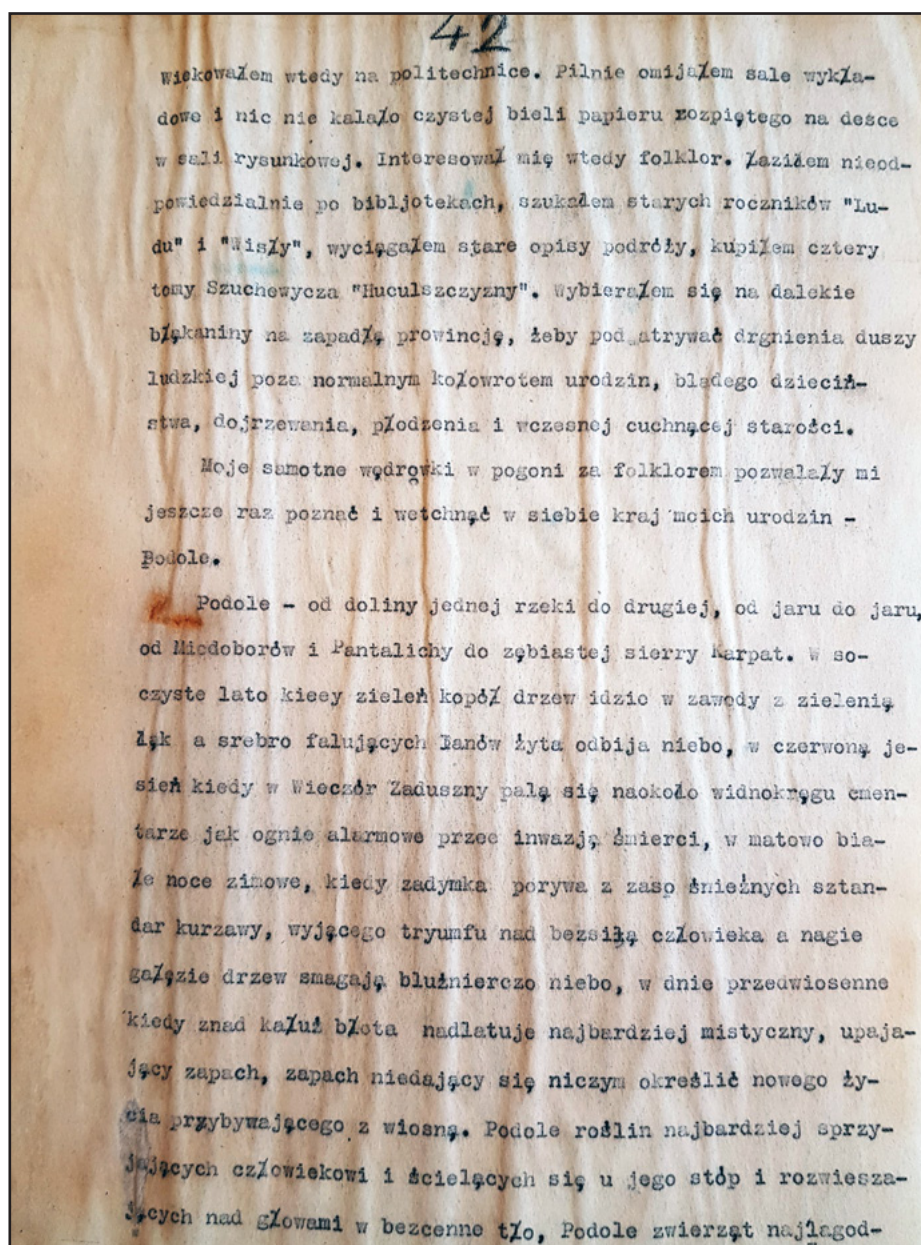 42
wiekowałem wtedy na politechnice. Pilnie omijałem sale wykła-
dowe i nic nie kalało czystej bieli papieru rozpiętego na desce
w sali rysunkowej. Interesował mię wtedy folklor. Łaziłem nieod-
powiedzialnie po bibljotekach, szukałem starych roczników "Lu-
du" i "Wisły", wyciągałem stare opisy podróży, kupiłem cztery
tomy Szuchewycza "Huculszczyzny". Wybierałem się na dalekie
błąkaniny na zapadłą prowincję, żeby pod atrywać drgnienia duszy
ludzkiej poza normalnym kołowrotem urodzin, bladego dzieciń-
stwa, dojrzewania, płodzenia i wczesnej cuchnącej starości.
Moje samotne wędrowki w pogoni za folklorem pozwalały mi
jeszcze raz poznać i wetchnąć w siebie kraj moich urodzin -
Podole.
Podole - od doliny jednej rzeki do drugiej, od jaru do jaru,
od Miodoborów i Pantalichy do zębiastej sierry Karpat. W so-
czyste lato kieey zieleń kopół drzew idzie w zawody z zielenią
łąk a srebro falujących łanów żyta odbija niebo, w czerwoną je-
sień kiedy w Wieczór Zaduszny palą się naokoło widnokręgu cmen-
tarze jak ognie alarmowe przec inwazją śmierci, w matowo bia-
łe noce zimowe, kiedy zadymka porywa z zasp śnieżnych sztan-
dar kurzawy, wyjącego tryumfu nad bezsiłą człowieka a nagie
gałęzie drzew smagają bluźnierczo niebo, w dnie przedwiosenne
kiedy znad kałuż błota nadlatuje najbardziej mistyczny, upaja-
jący zapach, zapach niedający się niczym określić nowego ży-
cia przybywającego z wiosną. Podole roślin najbardziej sprzy-
jających człowiekowi i ścielących się u jego stóp i rozwiesza-
jących nad głowami w bezcenne tło, Podole zwierząt najłagod-